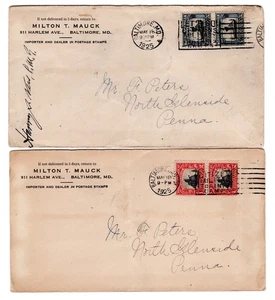 If not delivered in 5 days, return to
MILTON T. MAUCK
811 HARLEM AVE., BALTIMORE, MD.
IMPORTER AND DEALER IN POSTAGE STAMPS
BALTIMORE, MD.
MAY
PM
1925
Mr. F. Peters
North Glenside
Penna.
If not delivered in 5 days, return to
MILTON T. MAUCK
811 HARLEM AVE., BALTIMORE, MD.
IMPORTER AND DEALER IN POSTAGE STAMPS
BALTIMORE
MAY
9-PM
1925
Mr. F. Peters
North Glenside
Penna.